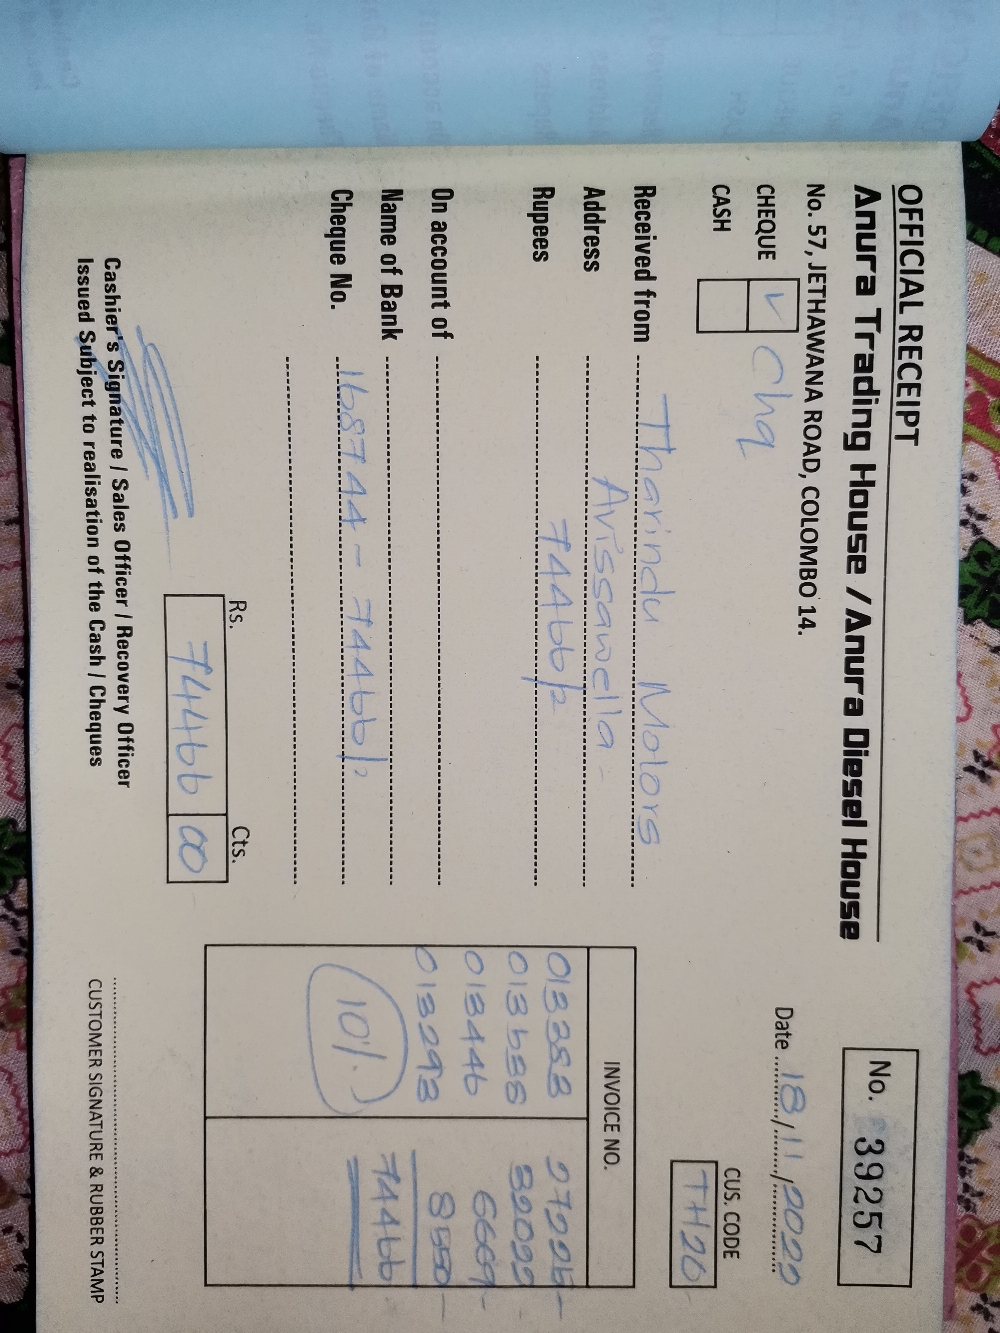 OFFICIAL RECEIPT
Anura Trading House / Anura Diesel House
No. 57, JETHAWANA ROAD, COLOMBO 14.
No. 39257
Date 18/11/2022
CHEQUE ✓ Chq
CASH
CUS. CODE
TH26
Received from Tharindu Motors
Address Avissawella -
Rupees 74466/=
On account of
Name of Bank
Cheque No. 168744 - 74466/=
INVOICE NO.
013353 27225-
013535 32022-
013446 6669-
013293 8550-
10%. 74466
Rs. Cts.
74466 00
Cashier's Signature / Sales Officer / Recovery Officer
Issued Subject to realisation of the Cash / Cheques
CUSTOMER SIGNATURE & RUBBER STAMP